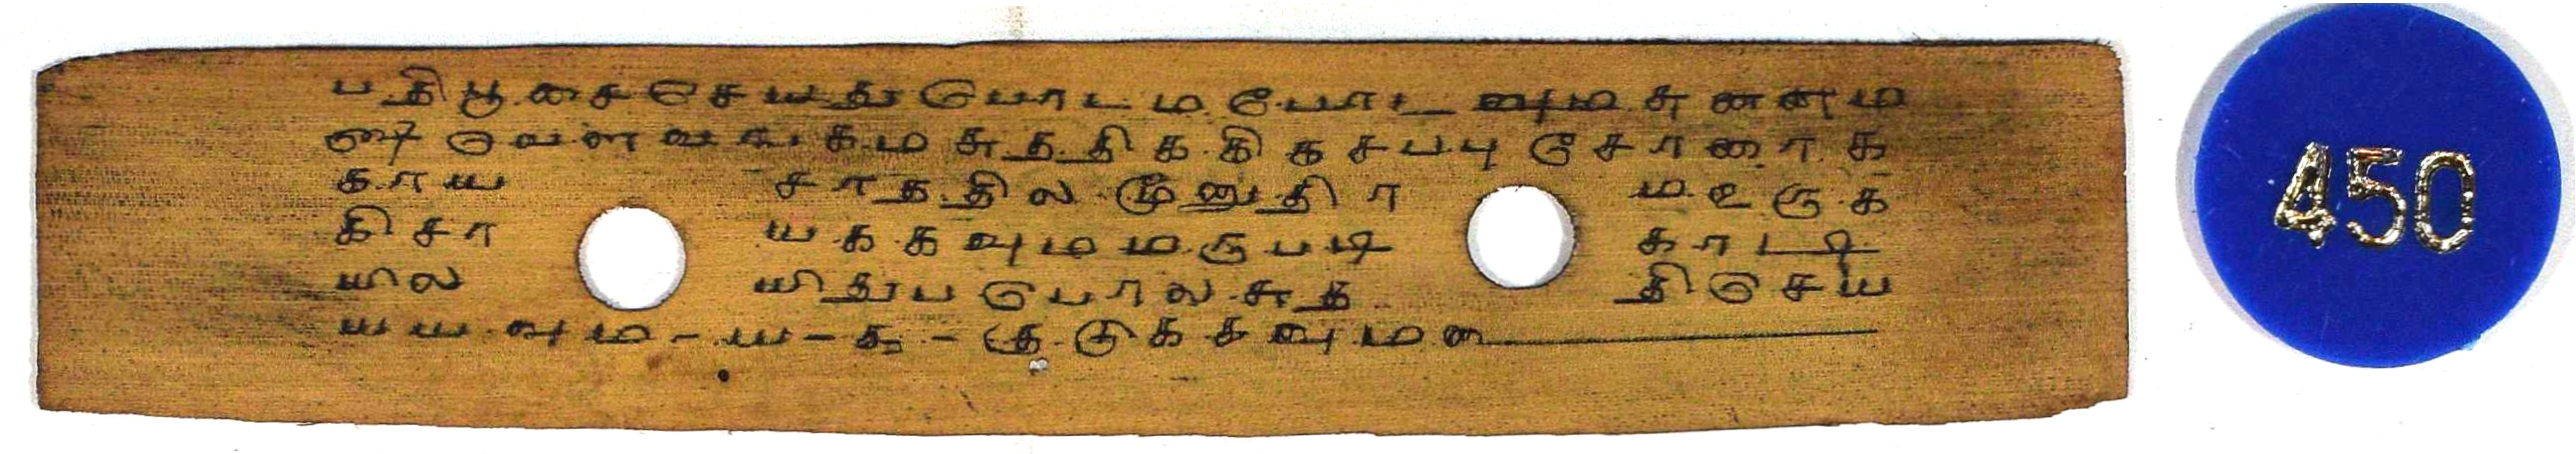 பதிபூசைசெயதுபொடடமபோடவுமசுனனம
ளூவெளவஙகமசுததிககிகசபபுசோறைக
காய சாததில மூனுதிர மஉருக
கிசா யககவுமமருபடி காடி
யில யிதுபபொலசுத திசெய
யயவுமயகுடுககவும
450